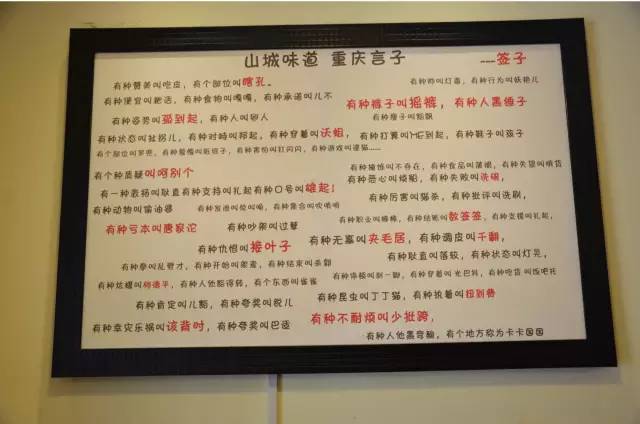 山城味道 重庆言子 ---签子
有种赞美叫吃皮，有个部位叫嗐孔。
有种帅叫灯毒，有种行为叫妖艳儿
有种便宜叫粑活，有种食物叫嘎嘎，有种承诺叫儿不
有种裤子叫摇裤，有种人黑缍子
有种姿势叫孤到起，有种人叫卵人
有种瘦子叫
有种状态叫扯拐儿，有种对峙叫邦起，有种穿着叫沃俎，
有种打算叫HE到起，有种鞋子叫孩子
有个部位叫罗兜，有种
有种害怕叫打闪闪，有种游戏叫逮猫......
有个种质疑叫呵别个
有种掩饰叫不存在，有种食品叫
有种失望叫
有种恶心叫烦躁，有种失败叫洗碗，
有一种表扬叫耿直有种支持叫扎起有种口号叫雄起！
有种厉害叫猫杀，有种批评叫洗刷，
有种动物叫偷油婆
有种集合叫吹哨哨
有种职业叫棒棒，有种结账叫数签签，有种支援叫扎起，
有种亏本叫唐家沱
有种吵架叫过孽
有种仇恨叫接叶子
有种无赖叫夹毛居，有种调皮叫千翻，
有种耿直叫落教，有种状态叫灯晃，
有种拳叫乱劈才，有种开始叫架墨，有种结束叫杀割
有种停顿叫刹一脚，有种穿着叫光巴斯，有种吃货叫饭吧坨
有种炫耀叫
有种人他豁得转，有个东西叫雀雀
有种昆虫叫丁丁猫，有种执着叫扭到费
有种肯定叫儿豁，有种夸奖叫脱儿
有种幸灾乐祸叫该背时，有种夸奖叫巴适
有种不耐烦叫少批跨，
有种人他黑穷糗，有个地方称为卡卡国国